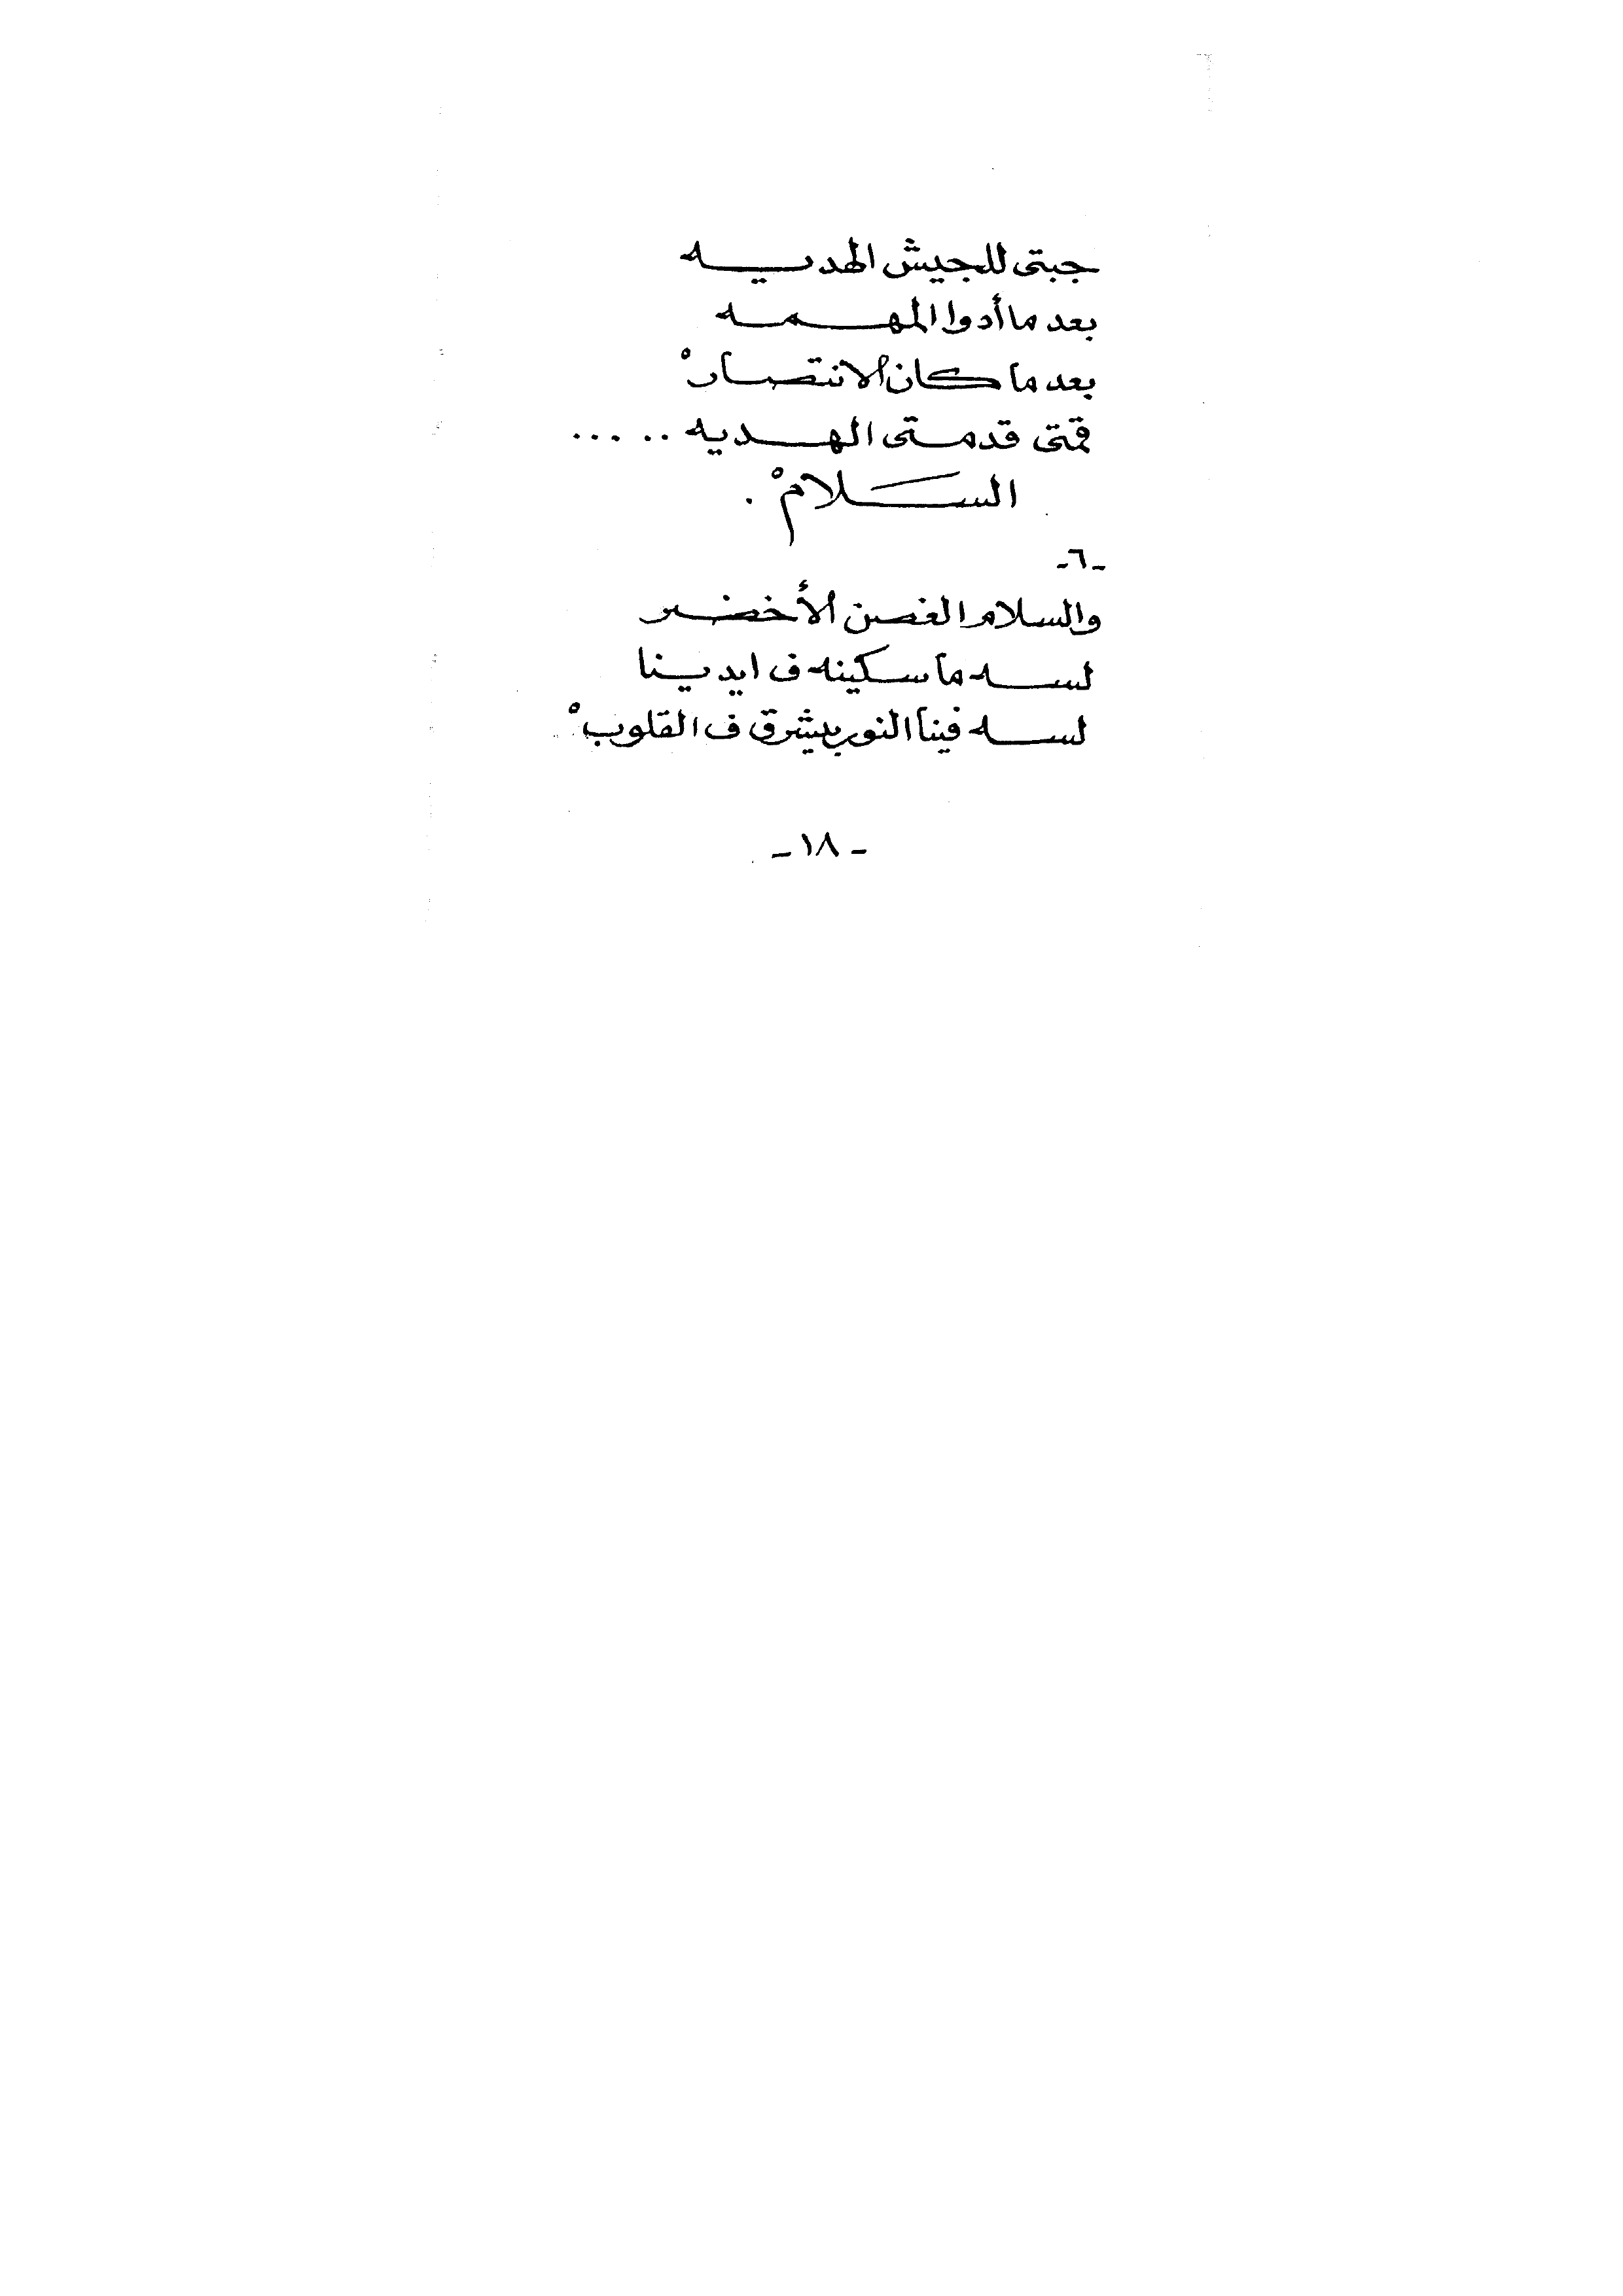 جبتى للجيش الهديه
بعد ما أدوا المهمه
بعد ما كان الانتصارْ
قمتى قدمتى الهديه .....
السَلامْ .
-٦-
والسلام الغصن الأخضر
لسه ماسكينه ف ايدينا
لسه فينا النور بيشرق ف القلوبْ
- ١٨ -